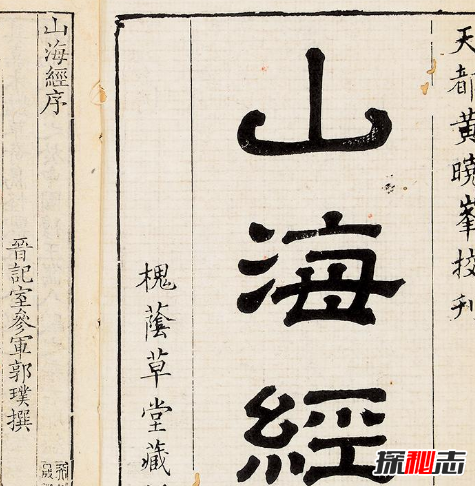 天都黄曉峯挍刋
山海經
槐蔭草堂藏
山海經序
晉記室參軍郭璞撰
探秘志